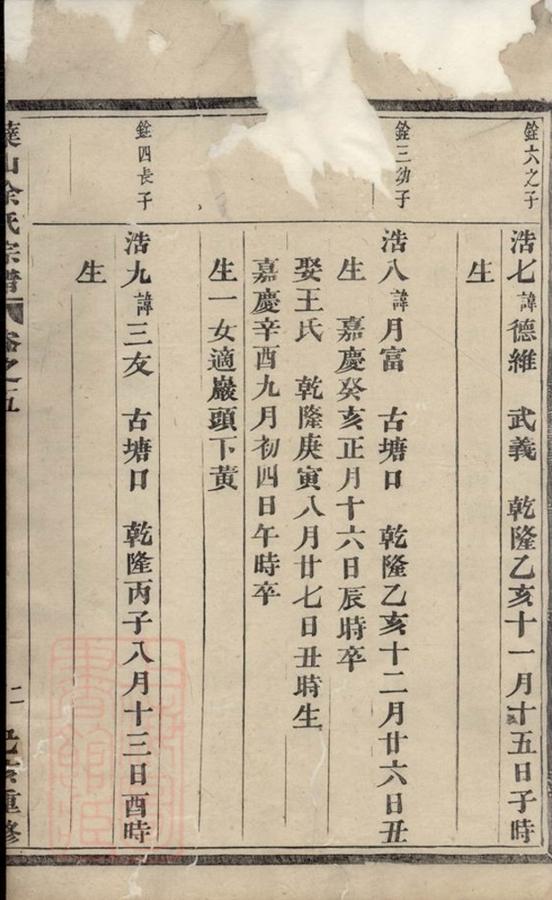 銓六之子
浩七諱德維 武義 乾隆乙亥十一月十五日子時
生
銓三幼子
浩八諱月富 古塘口 乾隆乙亥十二月廿六日丑
生 嘉慶癸亥正月十六日辰時卒
娶王氏 乾隆庚寅八月廿七日丑時生
嘉慶辛酉九月初四日午時卒
生一女適巖頭下黃
銓四長子
浩九諱三友 古塘口 乾隆丙子八月十三日酉時
生
山余氏宗譜 卷之五 二 重修